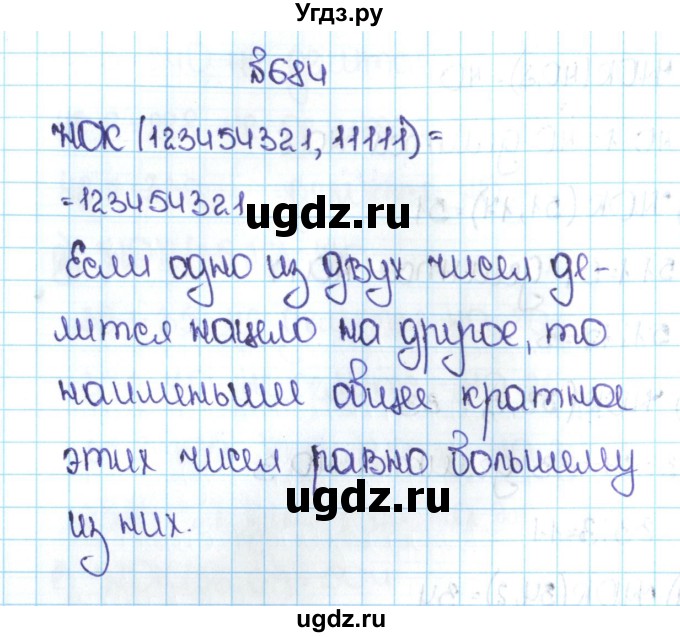 Угдз.ру
№684
НОК (123454321, 11111) =
= 123454321
ugdz.ru
Если одно из двух чисел де-
лится нацело на другое, то
наименьшее общее кратное
этих чисел равно большему
ugdz.ru
из них.
ugdz.ru